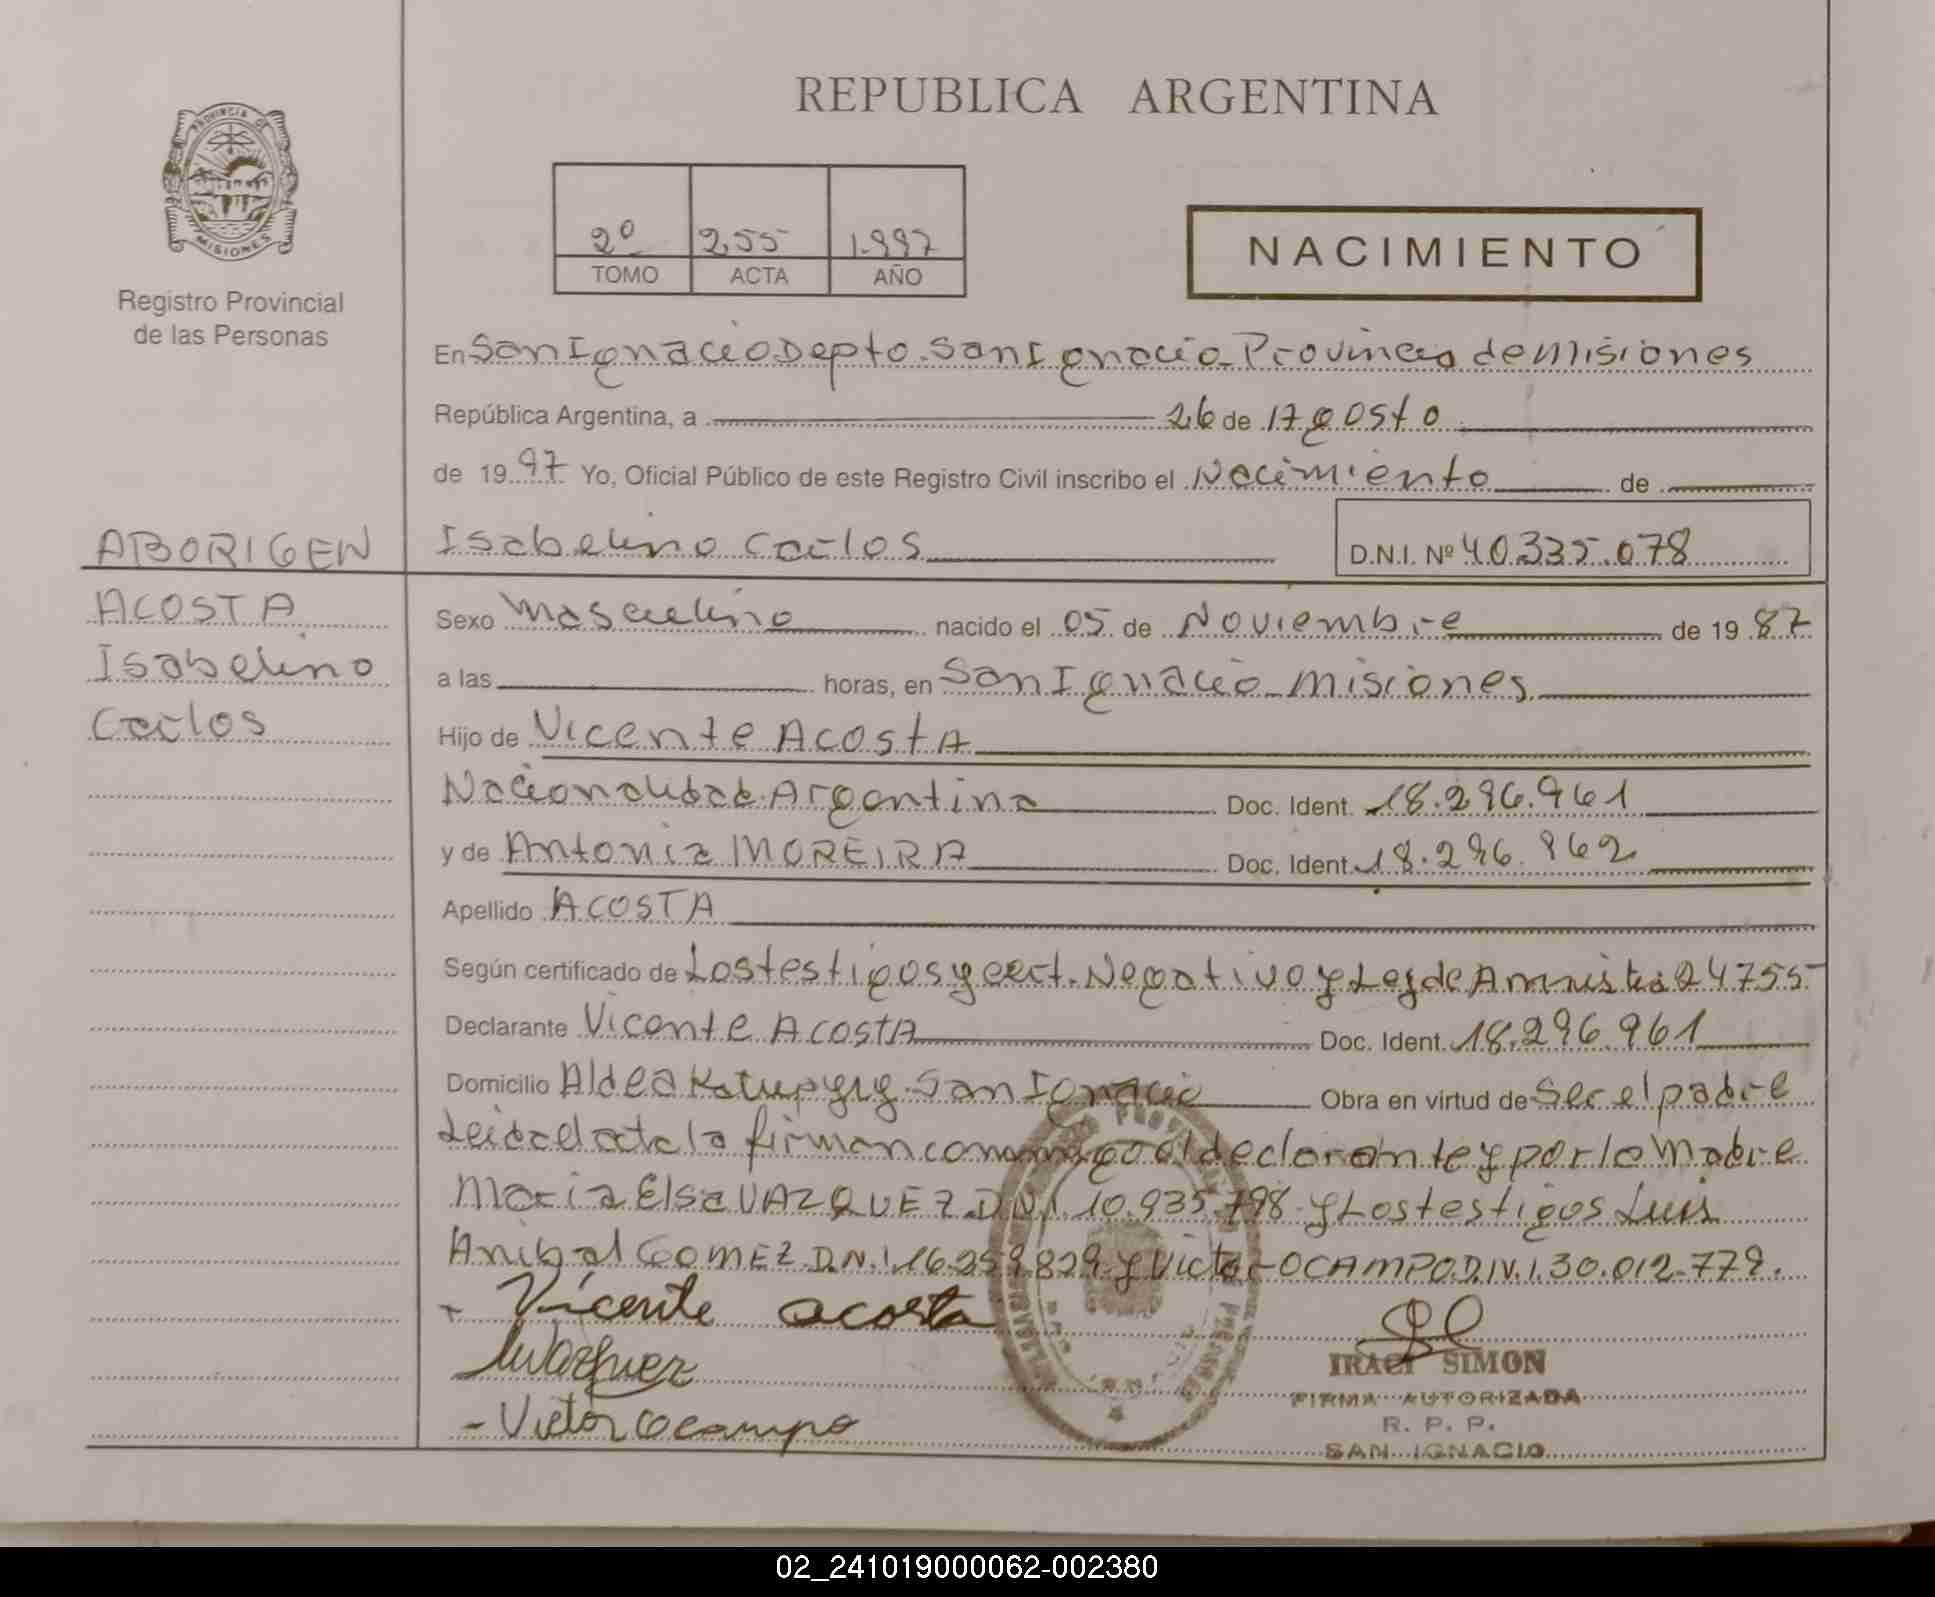 REPUBLICA ARGENTINA
PROVINCIA DE
MISIONES
Registro Provincial
de las Personas
2º 255 1.997
TOMO ACTA AÑO
NACIMIENTO
En San Ignacio Depto. San Ignacio Provincia de Misiones
República Argentina, a 26 de Agosto
de 1997 Yo, Oficial Público de este Registro Civil inscribo el Nacimiento de
ABORIGEN
Isabelino Carlos D.N.I. Nº 40.335.078
ACOSTA
Isabelino
Carlos
Sexo Masculino nacido el 05 de Noviembre de 1987
a las horas, en San Ignacio Misiones
Hijo de Vicente ACOSTA
Nacionalidad Argentina Doc. Ident. 18.296.961
y de Antonia MOREIRA Doc. Ident. 18.296.962
Apellido ACOSTA
Según certificado de Los testigos y cert. Negativo y Ley de Amnistia 24755
Declarante Vicente ACOSTA Doc. Ident. 18.296.961
Domicilio Aldea Katupyry San Ignacio Obra en virtud de Ser el padre
Leida el acta la firman conmigo el declarante y por la Madre
Maria Elsa VAZQUEZ D.N.I. 10.935.798 y Los testigos Luis
Anibal GOMEZ D.N.I. 16.259.829 y Victor OCAMPO D.N.I. 30.012.779.
- Vicente acosta
- Victor Ocampo
IRACI SIMON
FIRMA AUTORIZADA
R. P. P.
SAN IGNACIO
02_241019000062-002380